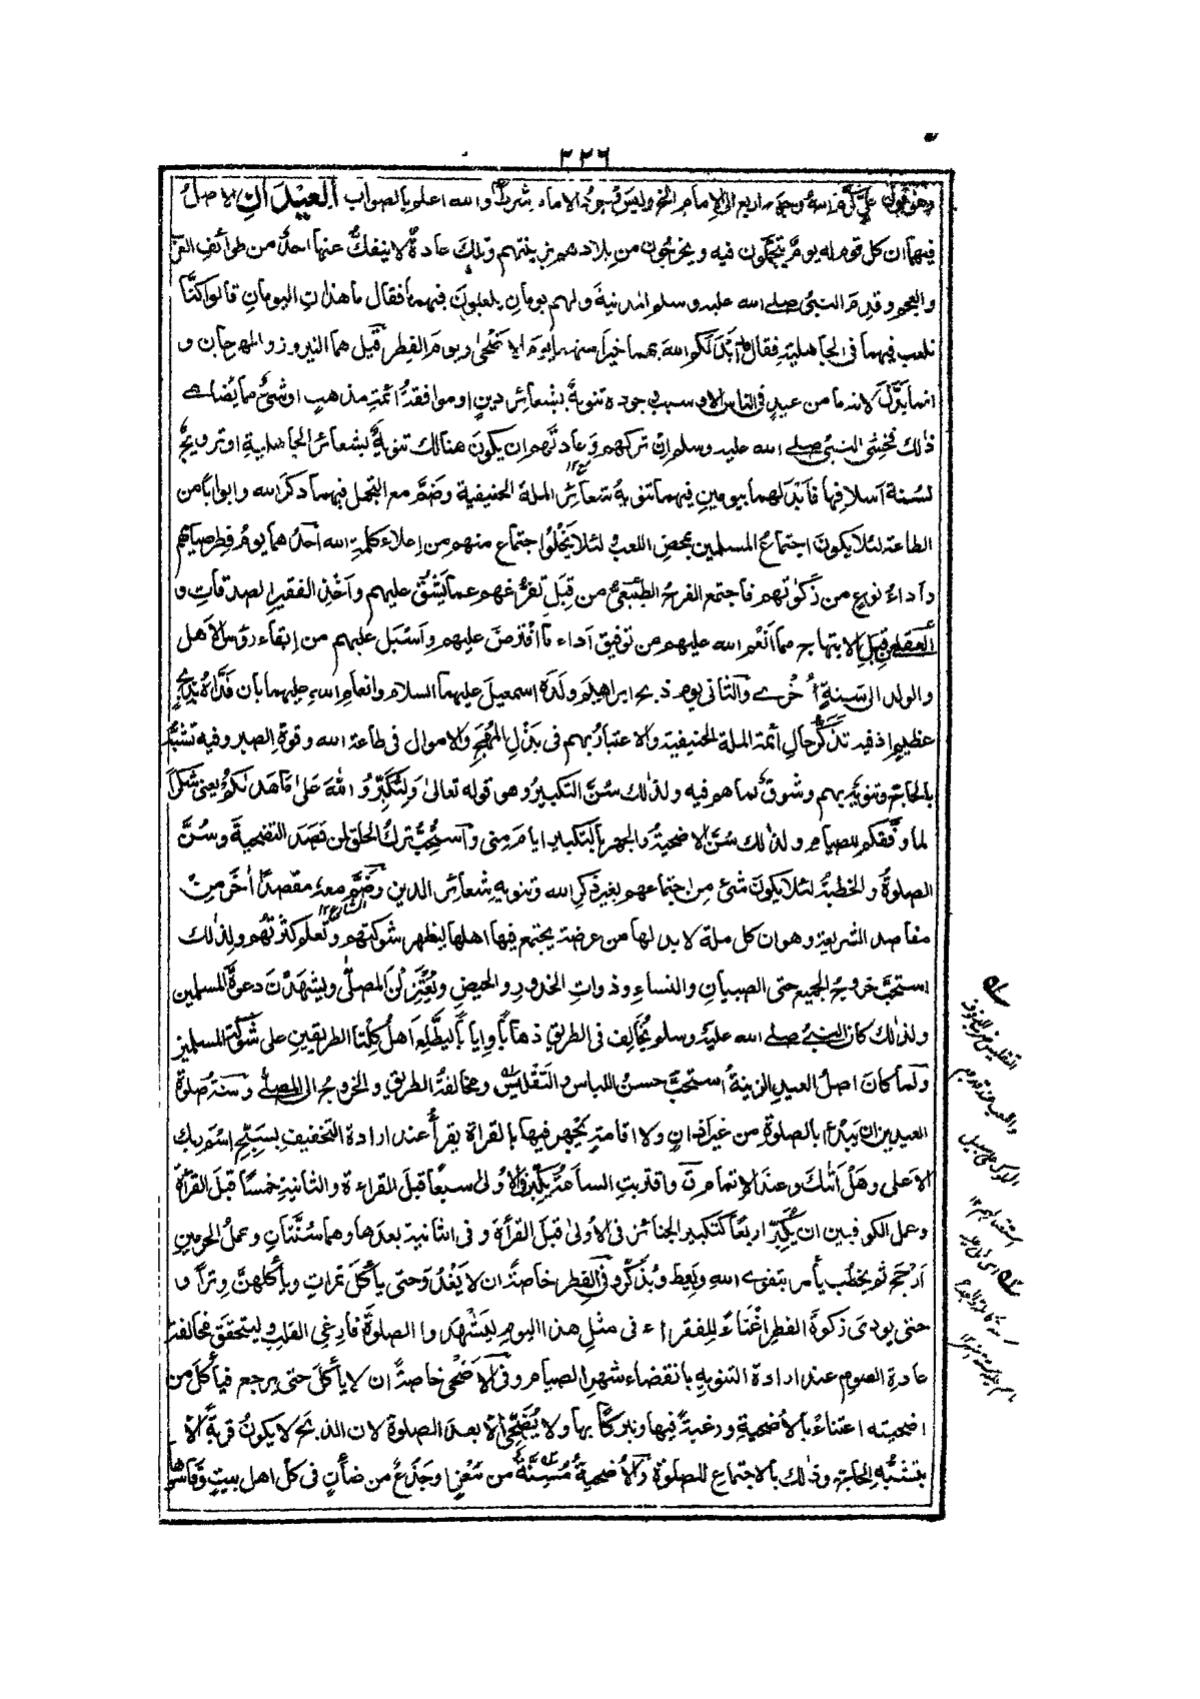 ٢٢٦
وهو قول علي كرم الله وجهه اربع الى الامام الخ وليس وجود الامام شرطا والله اعلم بالصواب العيدان الاصل
فيهما ان كل قوم له يوم يتجملون فيه ويخرجون من بلادهم بزينتهم وتلك عادة لا ينفك عنها احد من طوائف العرب
والعجم وقدم النبي صلى الله عليه وسلم المدينة ولهم يومان يلعبون فيهما فقال ما هذان اليومان قالوا كنا
نلعب فيهما في الجاهلية فقال قد ابدلكم الله بهما خيرا منهما يوم الاضحى ويوم الفطر قيل هما النيروز والمهرجان و
انما بدل لانه ما من عيد في الناس الا وسبب وجوده تنويه بشعائر دين او موافقة ائمة مذهب او شئ مما يضاهي
ذلك فخشي النبي صلى الله عليه وسلم ان تركهم وعادتهم ان يكون هنالك تنويه بشعائر الجاهلية او ترويج
لسنة اسلافها فابدلهما بيومين فيهما تنويه بشعائر الملة الحنيفية وضم مع التجمل فيهما ذكر الله وابوابا من
الطاعة لئلا يكون اجتماع المسلمين بمحض اللعب ولئلا يخلوا اجتماع منهم من اعلاء كلمة الله احدهما يوم فطر صيامهم
واداء نوع من زكوتهم فاجتمع الفرح الطبيعي من قبل تفرغهم عما يشق عليهم واخذ الفقير الصدقات و
العقلي من قبل الابتهاج مما انعم الله عليهم من توفيق اداء ما افترض عليهم واسبل عليهم من ابقاء رؤس الاهل
والولد الى سنة اخرى والثاني يوم ذبح ابراهيم ولده اسمعيل عليهما السلام وانعام الله عليهما بان فداه بذبح
عظيم اذ فيه تذكر حال ائمة الملة الحنيفية والاعتبار بهم في بذل المهج والاموال في طاعة الله وقوة الصبر وفيه تشبه
بالحاج وتنويه بهم وشوق لما هم فيه ولذلك سن التكبير وهو قوله تعالى ولتكبروا الله على ما هداكم يعني شكرا
لما وفقكم للصيام ولذلك سن الاضحية والجهر بالتكبير ايام منى واستحب ترك الحلق لمن قصد التضحية وسن
الصلوة والخطبة لئلا يكون شئ من اجتماعهم بغير ذكر الله وتنويه شعائر الدين وضم معه مقصدا اخر من
مقاصد الشريعة وهو ان كل ملة لا بد لها من عرضة يجتمع فيها اهلها ليظهر شوكتهم وتعلم كثرتهم ولذلك
استحب خروج الجميع حتى الصبيان والنساء وذوات الخدور والحيض ويعتزلن المصلى ويشهدن دعوة المسلمين
ولذلك كان النبي صلى الله عليه وسلم يخالف في الطريق ذهابا وايابا ليطلع اهل كلتا الطريقين على شوكة المسلمين
ولما كان اصل العيد الزينة استحب حسن اللباس والتقليس ومخالفة الطريق والخروج الى المصلى وسنة صلوة
العيدين ان يبدأ بالصلوة من غير اذان ولا اقامة يجهر فيها بالقراة يقرأ عند ارادة التخفيف بسبح اسم ربك
الاعلى وهل اتاك وعند الاتمام ق واقتربت الساعة يكبر في الاولى سبعا قبل القراءة والثانية خمسا قبل القرأة
وعمل الكوفيين ان يكبر اربعا كتكبير الجنائز في الاولى قبل القرأة وفي الثانية بعدها وهما سنتان وعمل الحرمين
ارجح ثم يخطب يأمر بتقوى الله ويعظ ويذكر وفي الفطر خاصة ان لا يغدو حتى يأكل تمرات ويأكلهن وترا و
حتى يودى زكوة الفطر اغناء للفقراء في مثل هذا اليوم ليشهدوا الصلوة فارغي القلب وليتحقق مخالفة
عادة الصوم عند ارادة التنويه بانقضاء شهر الصيام وفي الاضحى خاصة ان لا يأكل حتى يرجع فيأكل من
اضحيته اعتناء بالاضحية ورغبة فيها وتبركا بها ولا يضحى الا بعد الصلوة لان الذبح لا يكون قربة الا
بتشبه الحاج وذلك بالاجتماع للصلوة والاضحية مسنة من معز او جذع من ضأن في كل اهل بيت وقاسوا